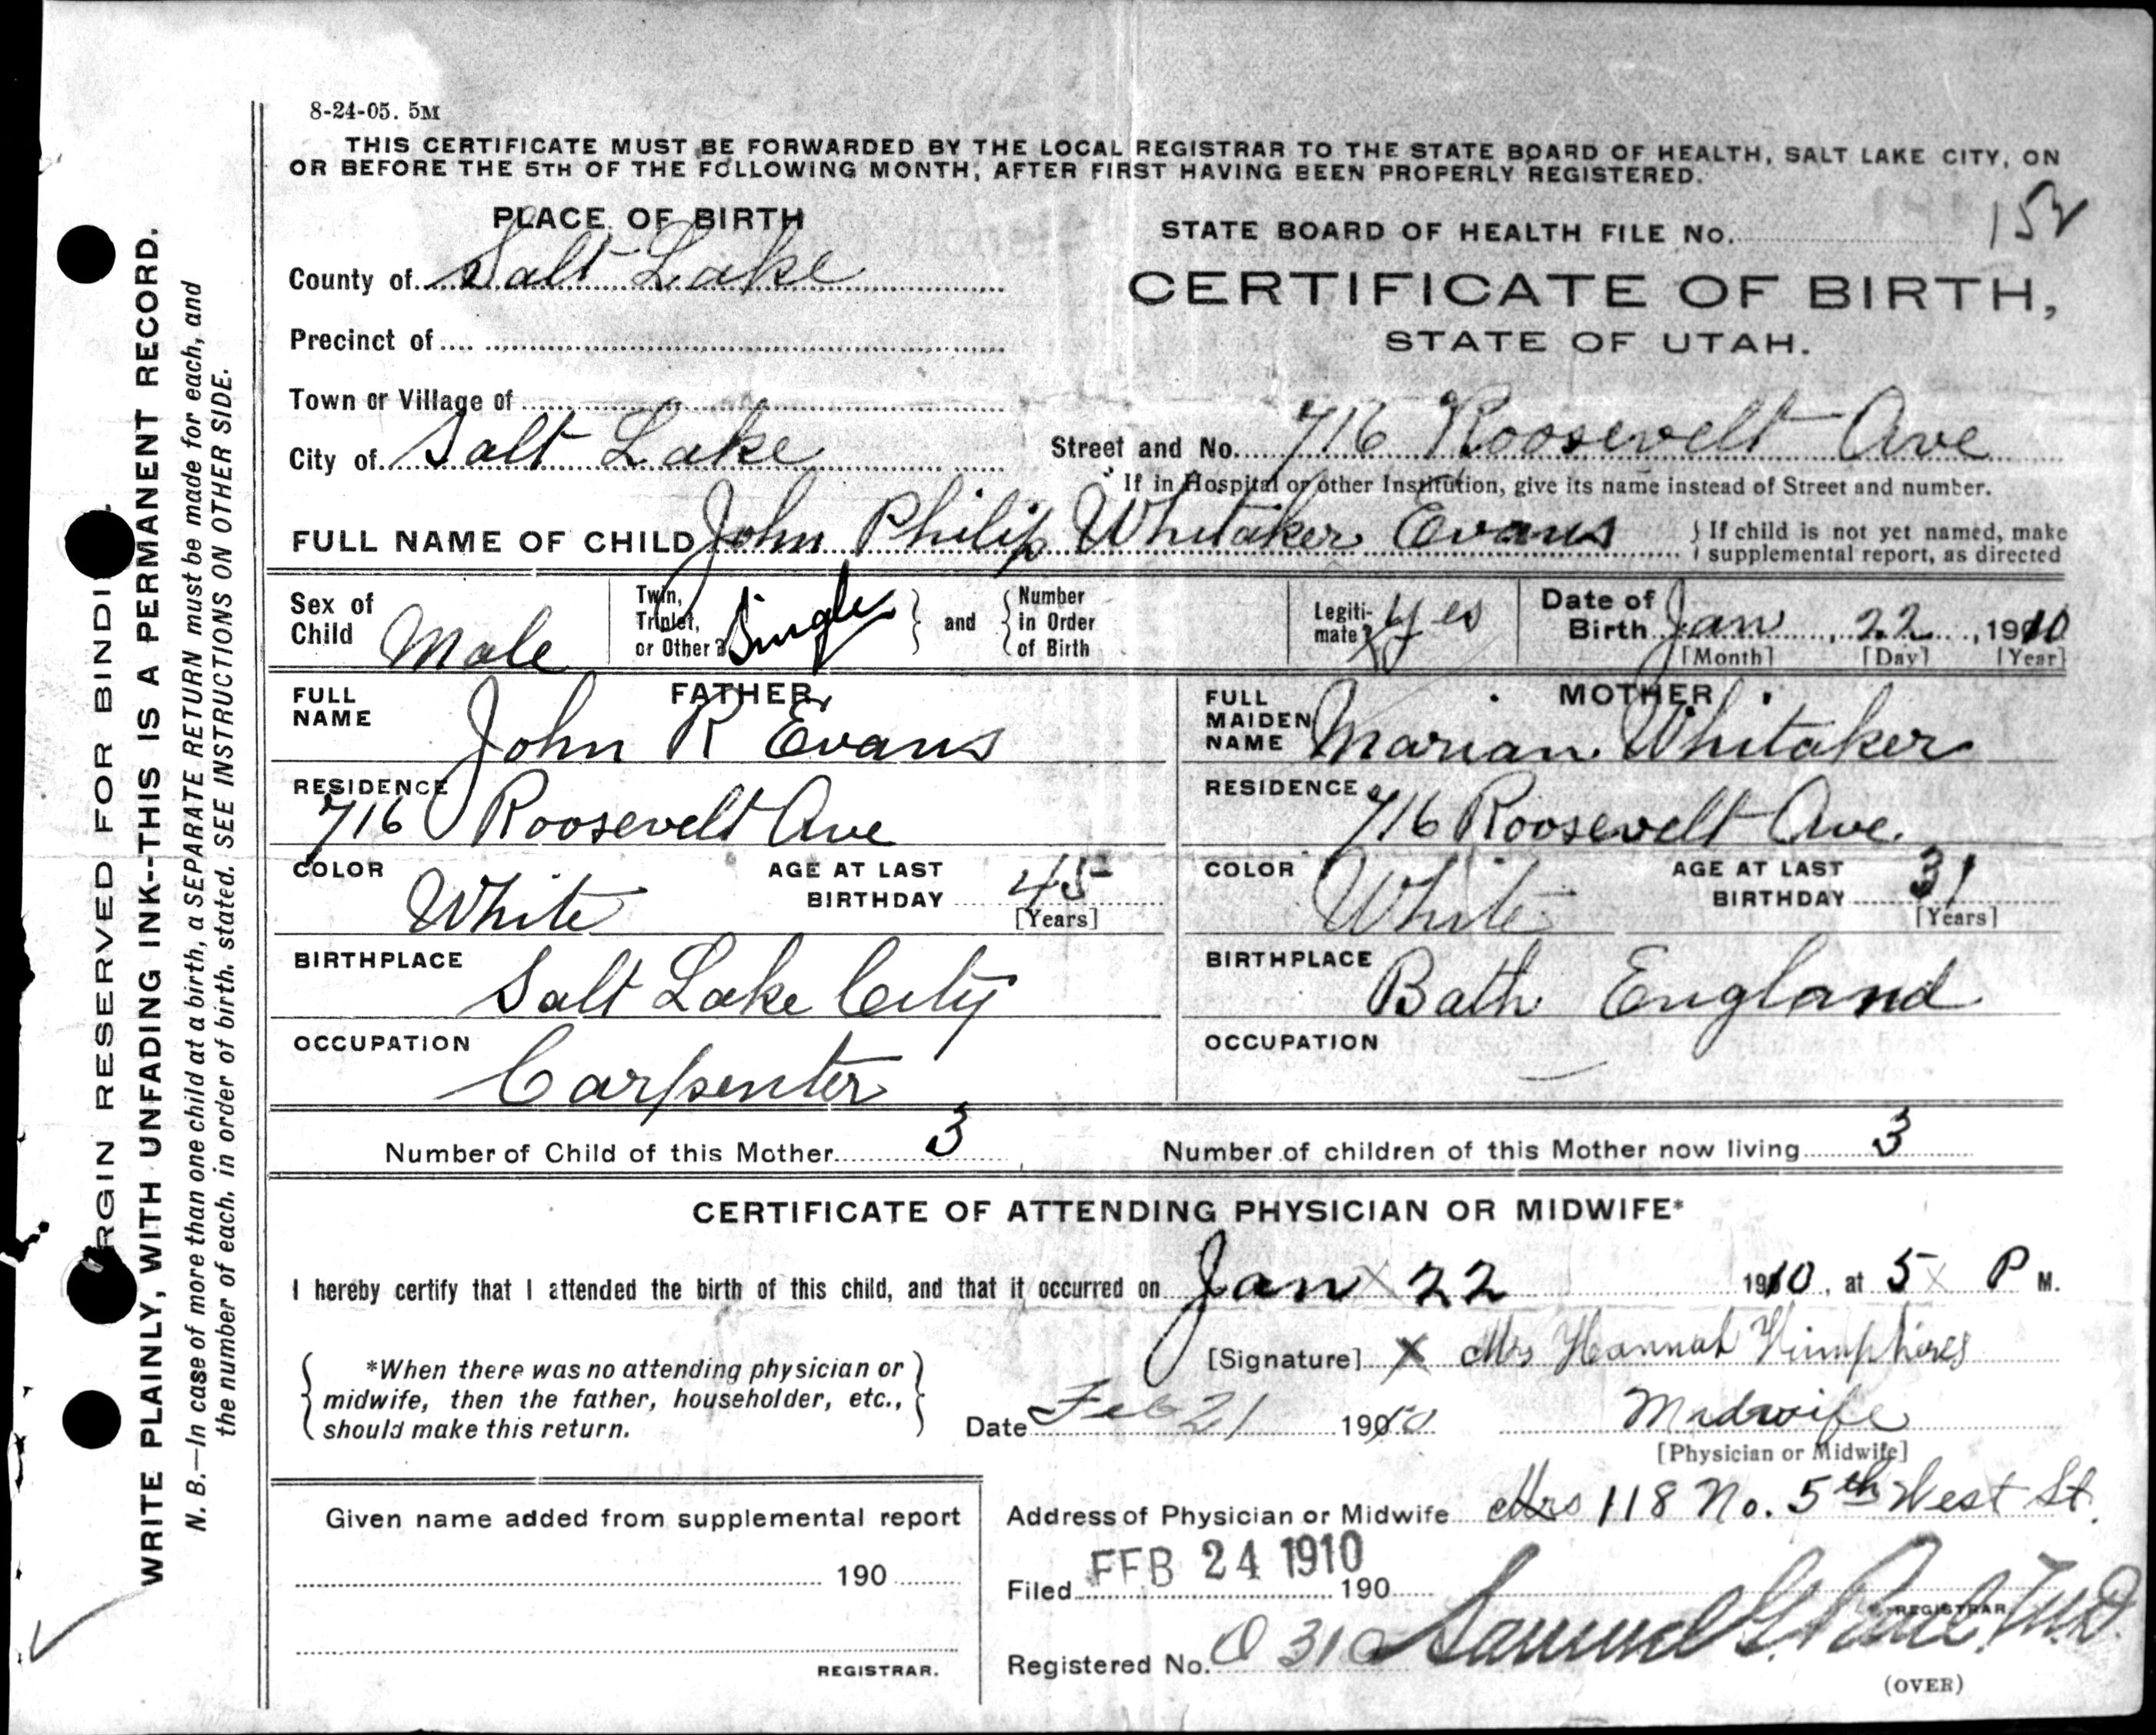 8-24-05. 5M
THIS CERTIFICATE MUST BE FORWARDED BY THE LOCAL REGISTRAR TO THE STATE BOARD OF HEALTH, SALT LAKE CITY, ON
OR BEFORE THE 5TH OF THE FOLLOWING MONTH, AFTER FIRST HAVING BEEN PROPERLY REGISTERED.
PLACE OF BIRTH
STATE BOARD OF HEALTH FILE No. 152
County of Salt Lake
CERTIFICATE OF BIRTH,
Precinct of
STATE OF UTAH.
Town or Village of
City of Salt Lake Street and No. 716 Roosevelt Ave
If in Hospital or other Institution, give its name instead of Street and number.
FULL NAME OF CHILD John Philip Whitaker Evans
If child is not yet named, make
supplemental report, as directed
Sex of
Child Male
Twin,
Triplet,
or Other? Single
and
Number
in Order
of Birth
Legiti-
mate? Yes
Date of
Birth Jan 22, 1910
[Month] [Day] [Year]
FATHER
FULL
NAME John R Evans
RESIDENCE
716 Roosevelt Ave
COLOR White
AGE AT LAST
BIRTHDAY 45
[Years]
BIRTHPLACE Salt Lake City
OCCUPATION Carpenter
MOTHER
FULL
MAIDEN
NAME Marian Whitaker
RESIDENCE 716 Roosevelt Ave.
COLOR White
AGE AT LAST
BIRTHDAY 31
[Years]
BIRTHPLACE Bath England
OCCUPATION
Number of Child of this Mother 3 Number of children of this Mother now living 3
CERTIFICATE OF ATTENDING PHYSICIAN OR MIDWIFE*
I hereby certify that I attended the birth of this child, and that it occurred on Jan x 22 1910, at 5 x P M.
*When there was no attending physician or
midwife, then the father, householder, etc.,
should make this return.
[Signature] x Mrs Hannah
Date Feb 21 1910 Midwife
[Physician or Midwife]
Given name added from supplemental report
190
REGISTRAR.
Address of Physician or Midwife Mrs 118 No. 5th West St.
Filed FEB 24 1910 190
Registered No. O 310 Samuel G. Paul, M.D.
REGISTRAR
(OVER)
RGIN RESERVED FOR BINDI
WRITE PLAINLY, WITH UNFADING INK--THIS IS A PERMANENT RECORD.
N. B.—In case of more than one child at a birth, a SEPARATE RETURN must be made for each, and
the number of each, in order of birth, stated. SEE INSTRUCTIONS ON OTHER SIDE.